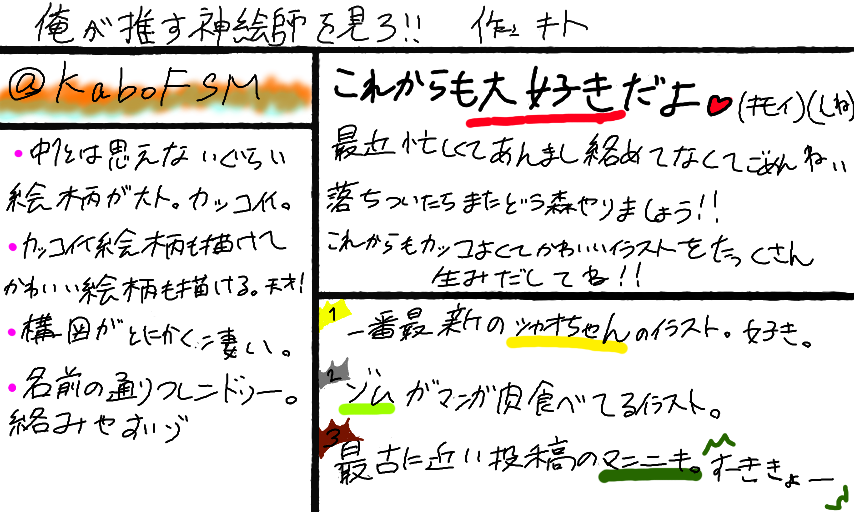 俺が推す神絵師を見ろ!! 作:キト
@KaboFSM
・中1とは思えないぐらい
絵柄が大ト。カッコイイ。
・カッコイイ絵柄も描けて
かわいい絵柄も描ける。天才!
・構図がとにかく凄い。
・名前の通りフレンドリー。
絡みやすいゾ
これからも大好きだよ♥(キモイ)(しね)
最近忙しくてあんまし絡めてなくてごめんねぃ
落ちついたらまたどう森やりましょう!!
これからもカッコよくてかわいいイラストをたっくさん
生みだしてね!!
1 一番最新のシャオちゃんのイラスト。好き。
2 ゾムがマンガ肉食べてるイラスト。
3 最古に近い投稿のマニニキ。すーききょー